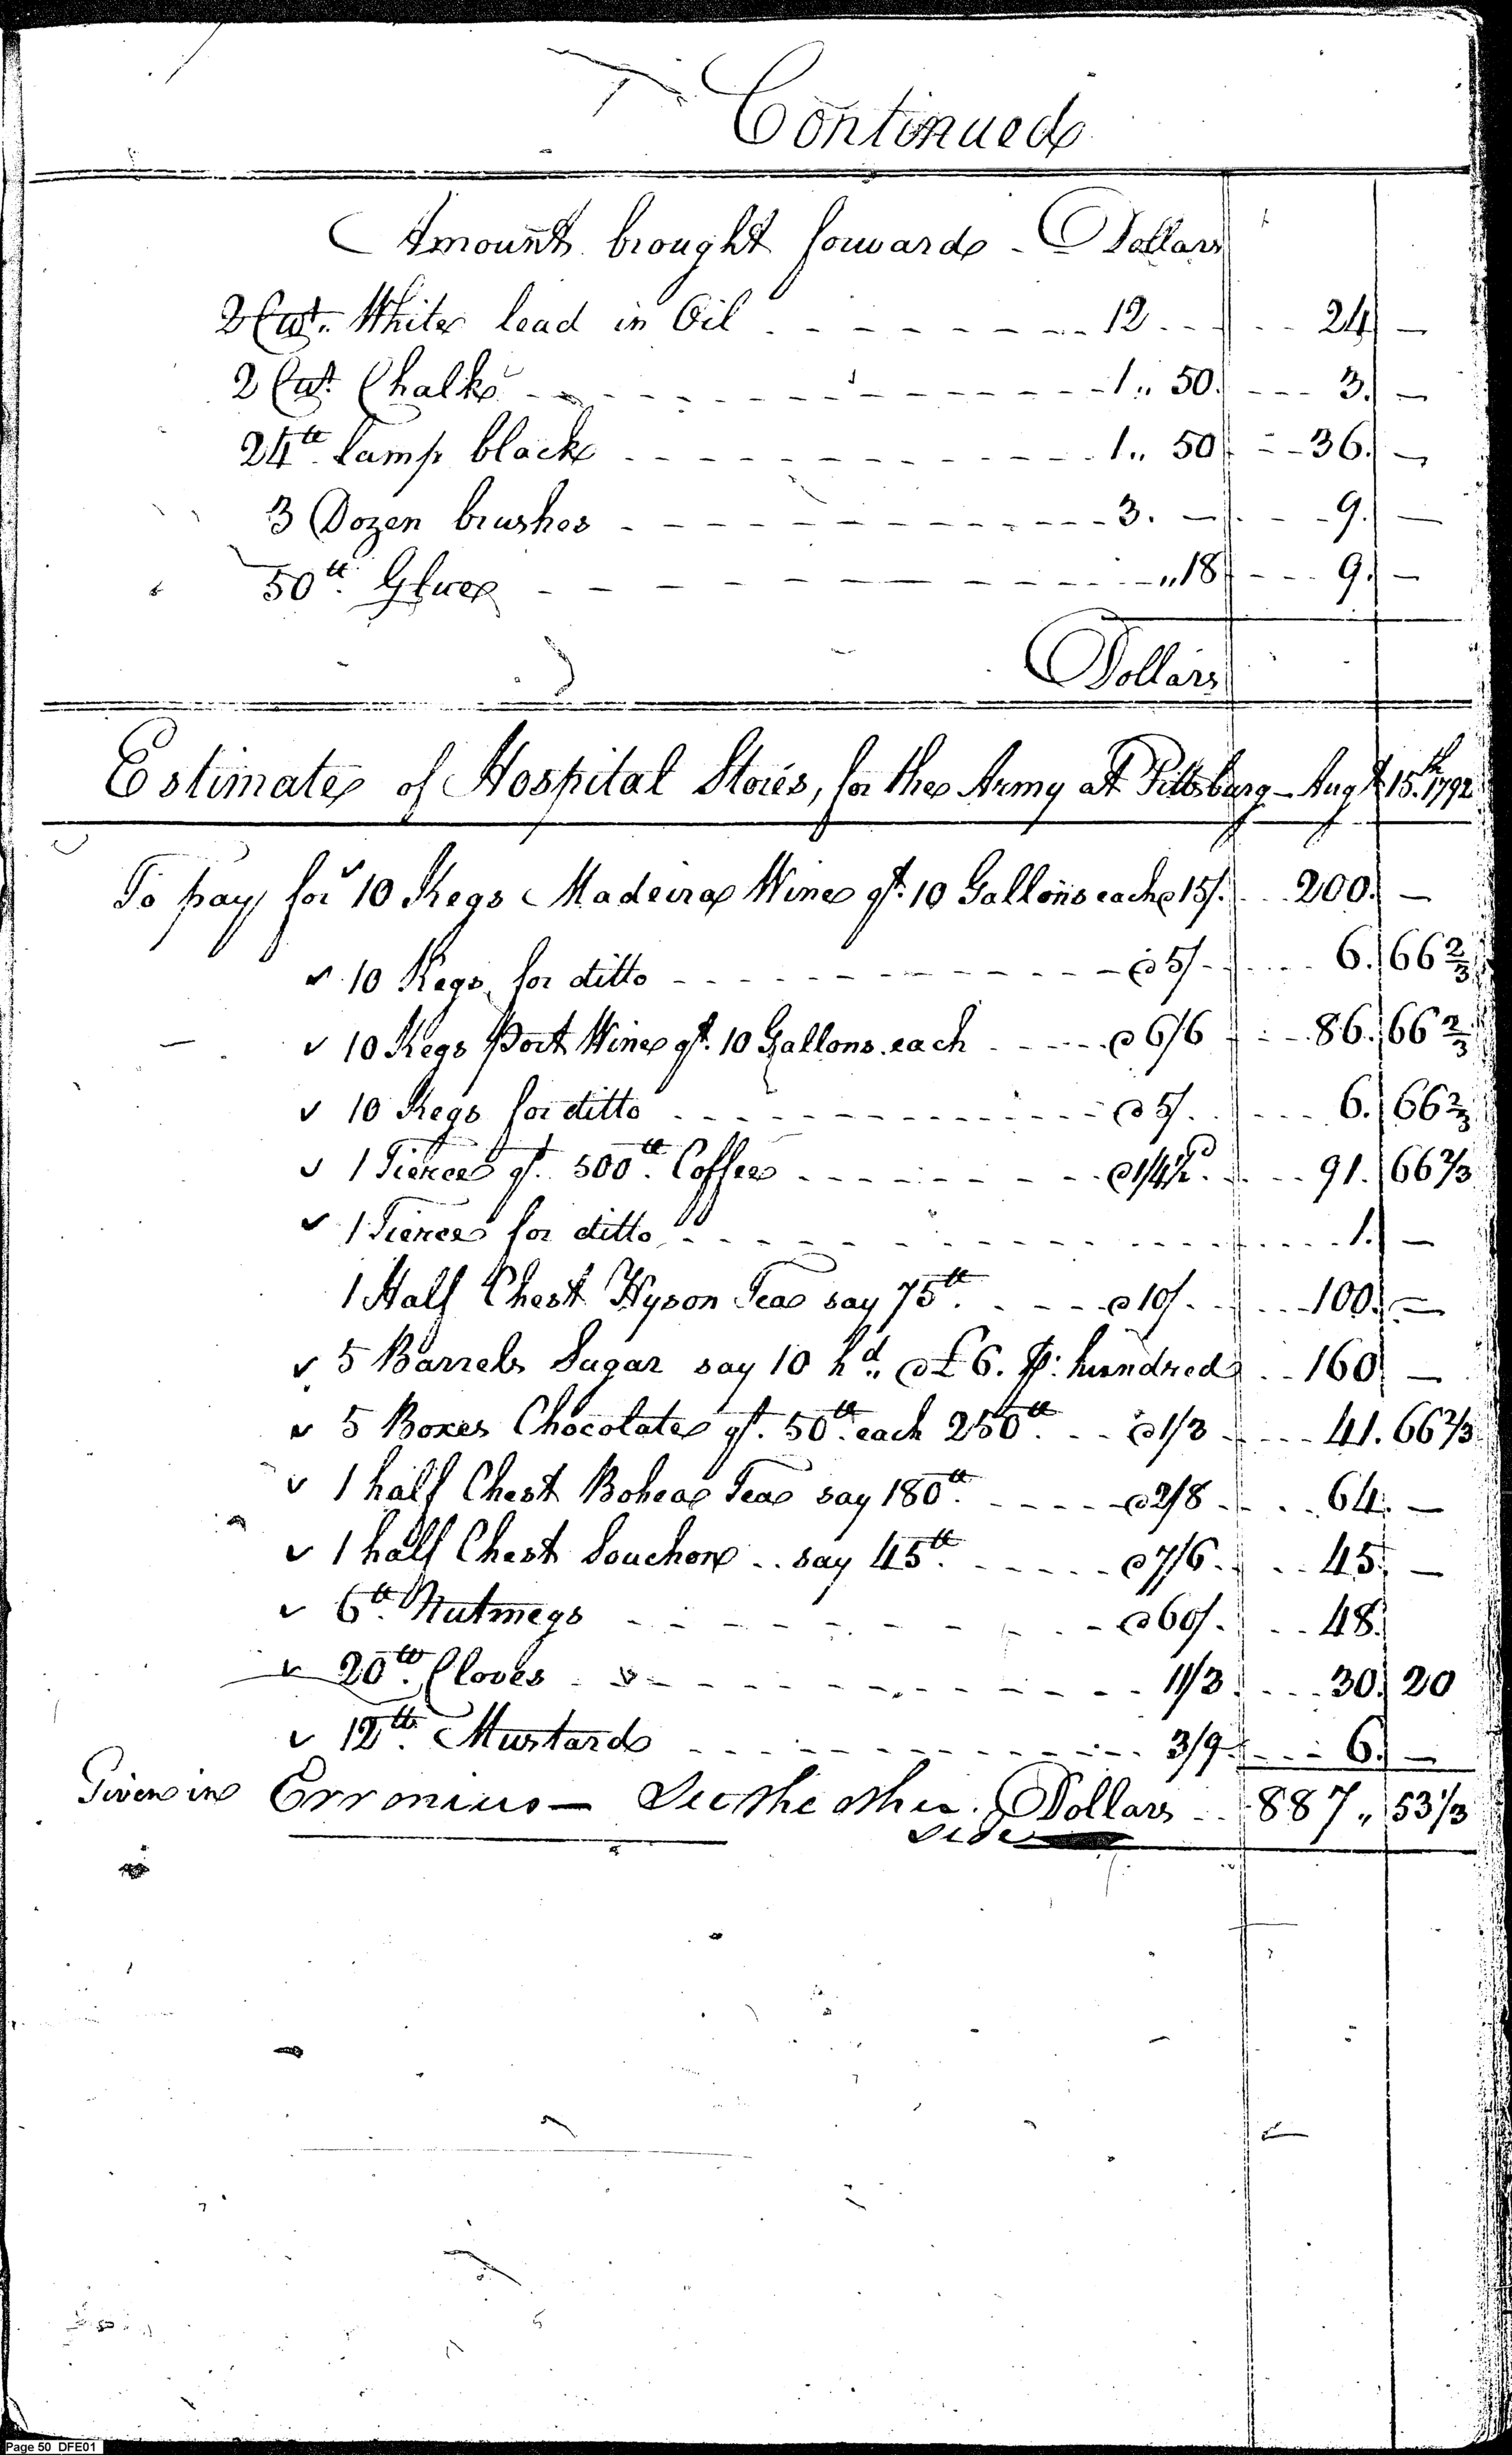 Continued
Amount brought forward - Dollars
2 Cwt. White lead in Oil 12 24 —
2 Cwt. Chalk 1,, 50. 3. —
24 lb. Lamp black 1,, 50 36. —
3 Dozen brushes 3. — 9. —
50 lb. Glue ,,18 9. —
Dollars
Estimate of Hospital Stores, for the Army at Pittsburg - Augt. 15th. 1792
To pay for 10 Kegs Madeira Wine qt. 10 Gallons each @ 15/. 200. —
✓ 10 Kegs for ditto @ 5/- 6. 66 2/3
✓ 10 Kegs Port Wine qt. 10 Gallons each @ 6/6 86. 66 2/3
✓ 10 Kegs for ditto @ 5/. 6. 66 2/3
✓ 1 Tierce qt. 500 lb. Coffee @ 1/4½ 91. 66 2/3
✓ 1 Tierce for ditto 1. —
1 Half Chest Hyson Tea say 75 lb. @ 10/. 100. —
✓ 5 Barrels Sugar say 10 hd. @ £6. p: hundred 160 —
✓ 5 Boxes Chocolate qt. 50 lb. each 250 lb. @ 1/3 41. 66 2/3
✓ 1 half Chest Bohea Tea say 180 lb. @ 2/8 64. —
✓ 1 half Chest Souchon .. say 45 lb. @ 7/6. 45. —
✓ 6 lb. Nutmegs @ 60/. 48.
✓ 20 lb. Cloves 11/3 30. 20
✓ 12 lb. Mustard 3/9 6. —
Given in Erronius — See the other Dollars 887 ,, 53 1/3
side
Page 50 DFE01